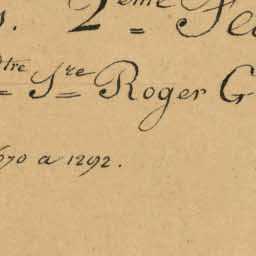 s. 2eme Fe
tre Sre Roger G
670 a 1292.